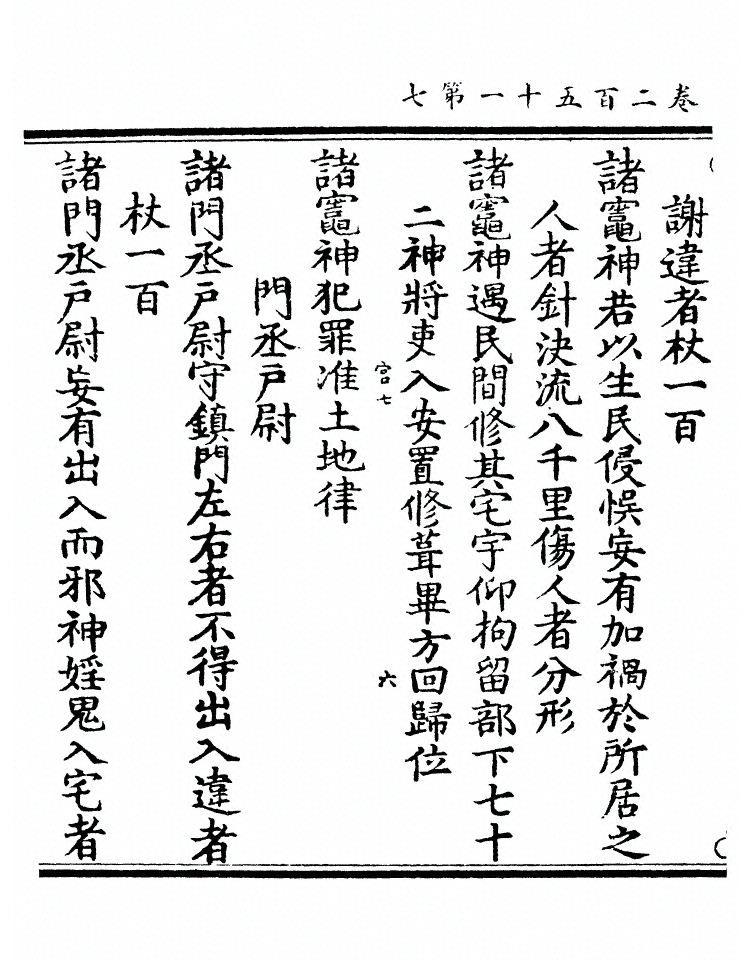 卷二百五十一第七
謝違者杖一百
諸竈神若以生民侵悞妄有加禍於所居之
人者針決流八千里傷人者分形
諸竈神遇民間修其宅宇仰拘留部下七十
二神將吏入安置修葺畢方回歸位
宫七
六
諸竈神犯罪准土地律
門丞戸尉
諸門丞戸尉守鎮門左右者不得出入違者
杖一百
諸門丞戸尉妄有出入而邪神婬鬼入宅者